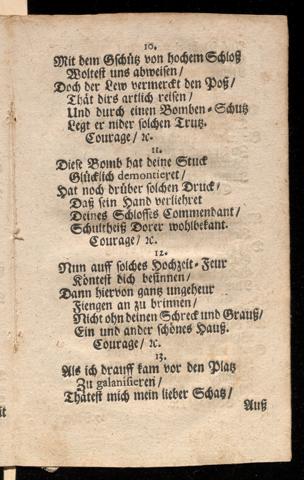 10.
Mit dem Gschütz von hochem Schloß
Woltest uns abweisen /
Doch der Lew vermerckt den Poß /
Thät dirs artlich reisen /
Und durch einen Bomben-Schutz
Legt er nider solchen Trutz.
Courage / ꝛc.
11.
Diese Bomb hat deine Stuck
Glücklich demontieret /
Hat noch drüber solchen Druck /
Daß sein Hand verliehret
Deines Schlosses Commendant /
Schultheiß Dorer wohlbekant.
Courage / ꝛc.
12.
Nun auff solches Hochzeit-Feur
Köntest dich besinnen /
Dann hiervon gantz ungeheur
Fiengen an zu brinnen /
Nicht ohn deinen Schreck und Grauß /
Ein und ander schönes Hauß.
Courage / ꝛc.
13.
Als ich drauff kam vor den Platz
Zu galanisieren /
Thätest mich mein lieber Schatz /
Auß